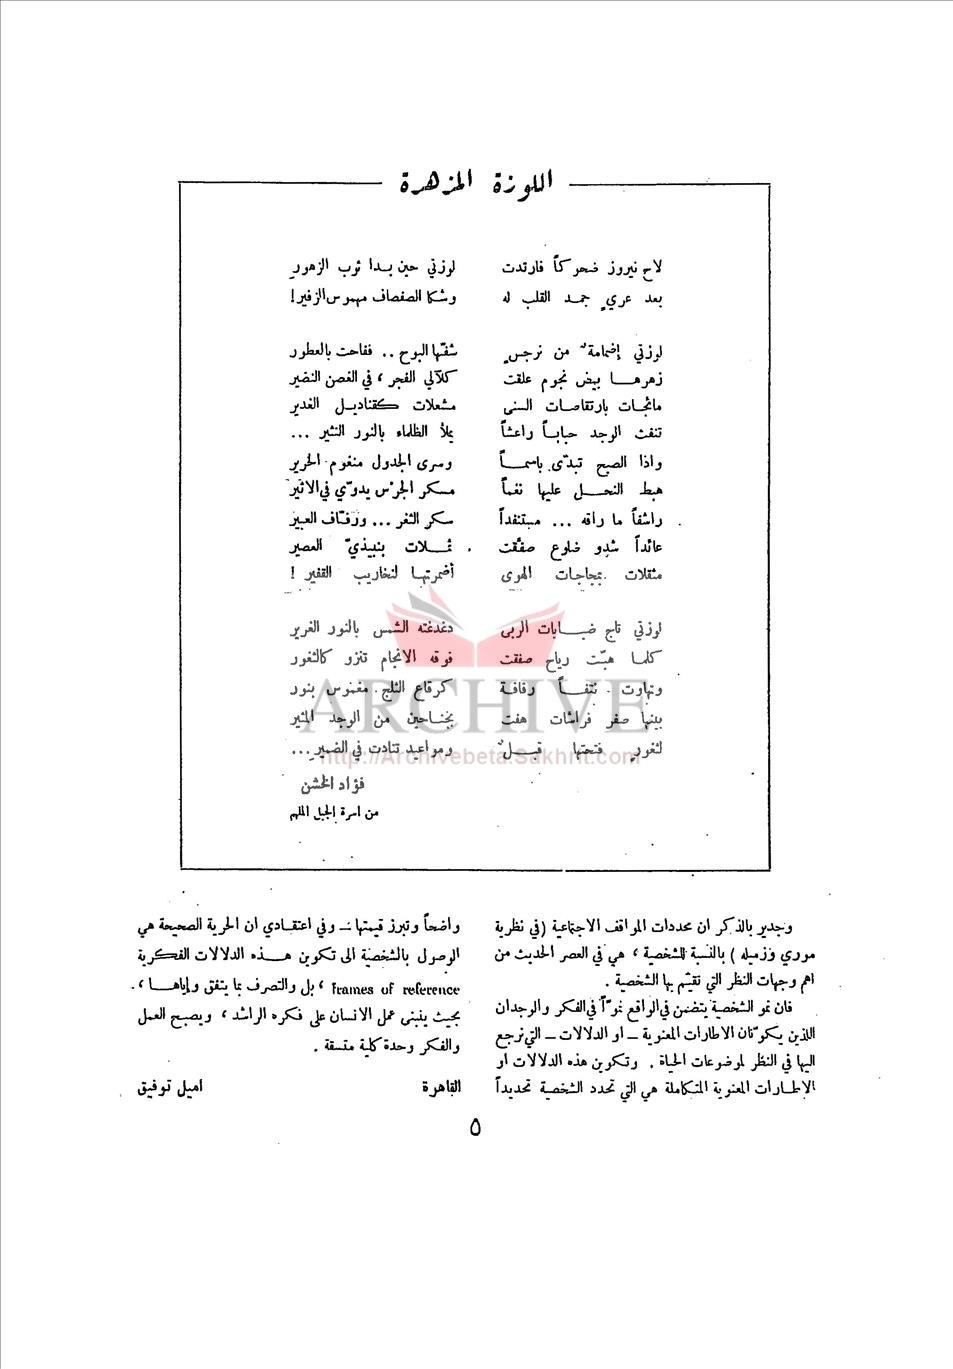 اللوزة المزهرة
لاح نيروز ضحوكاً فارتدت لوزتي حين بدا ثوب الزهور
بعد عريٍ جمد القلب له وشكا الصفصاف مهموس الزفير!
لوزتي إضمامة من نرجسٍ شفّها البوح .. ففاحت بالعطور
زهرها بيض نجوم علقت كلآلي الفجر ، في الغصن النضير
مائجات بارتقاصات السنى مشعلات كقناديل الغدير
تنفث الوجد حباباً راعشاً يملأ الظلماء بالنور النثير ...
واذا الصبح تبدّى باسماً وسرى الجدول منغوم الخرير
هبط النحل عليها نغماً مسكر الجرْس يدوّي في الاثير
راشفاً ما راقه ... مستنفداً سكر الثغر ... ورفّاف العبير
عائداً شدو ضلوع صفّقت ثملات بنبيذيّ العصير
مثقلات بمجاجات الهوى أضمرتها لنخاريب القفير !
لوزتي تاج ضبابات الربى دغدغته الشمس بالنور الغرير
كلما هبّت رياح صفقت فوقه الانجام تنزو كالثغور
وتهاوت نتفاً رفافة كرقاع الثلج مغموس بنور
بينها صفر فراشات هفت بجناحين من الوجد المثير
لثغورٍ فتحتها قبلٌ ومواعيد تنادت في الضمير ...
فؤاد الخشن
من اسرة الجبل الملهم
ARCHIVE
http://Archivebeta.Sakhrit.com
وجدير بالذكر ان محددات المواقف الاجتماعية (في نظرية
موري وزميله ) بالنسبة للشخصية ، هي في العصر الحديث من
اهم وجهات النظر التي تقيّم بها الشخصية .
فان نمو الشخصية يتضمن في الواقع نموّاً في الفكر والوجدان
اللذين يكوّنان الاطارات المعنوية – او الدلالات – التي نرجع
اليها في النظر لموضوعات الحياة . وتكوين هذه الدلالات او
الاطارات المعنوية المتكاملة هي التي تحدد الشخصية تحديداً
واضحاً وتبرز قيمتها – وفي اعتقادي ان الحرية الصحيحة هي
الوصول بالشخصية الى تكوين هذه الدلالات الفكرية
frames of reference ، بل والتصرف بما يتفق واياها ،
بحيث ينبني عمل الانسان على فكره الراشد ، ويصبح العمل
والفكر وحدة كلية متسقة .
القاهرة اميل توفيق
٥